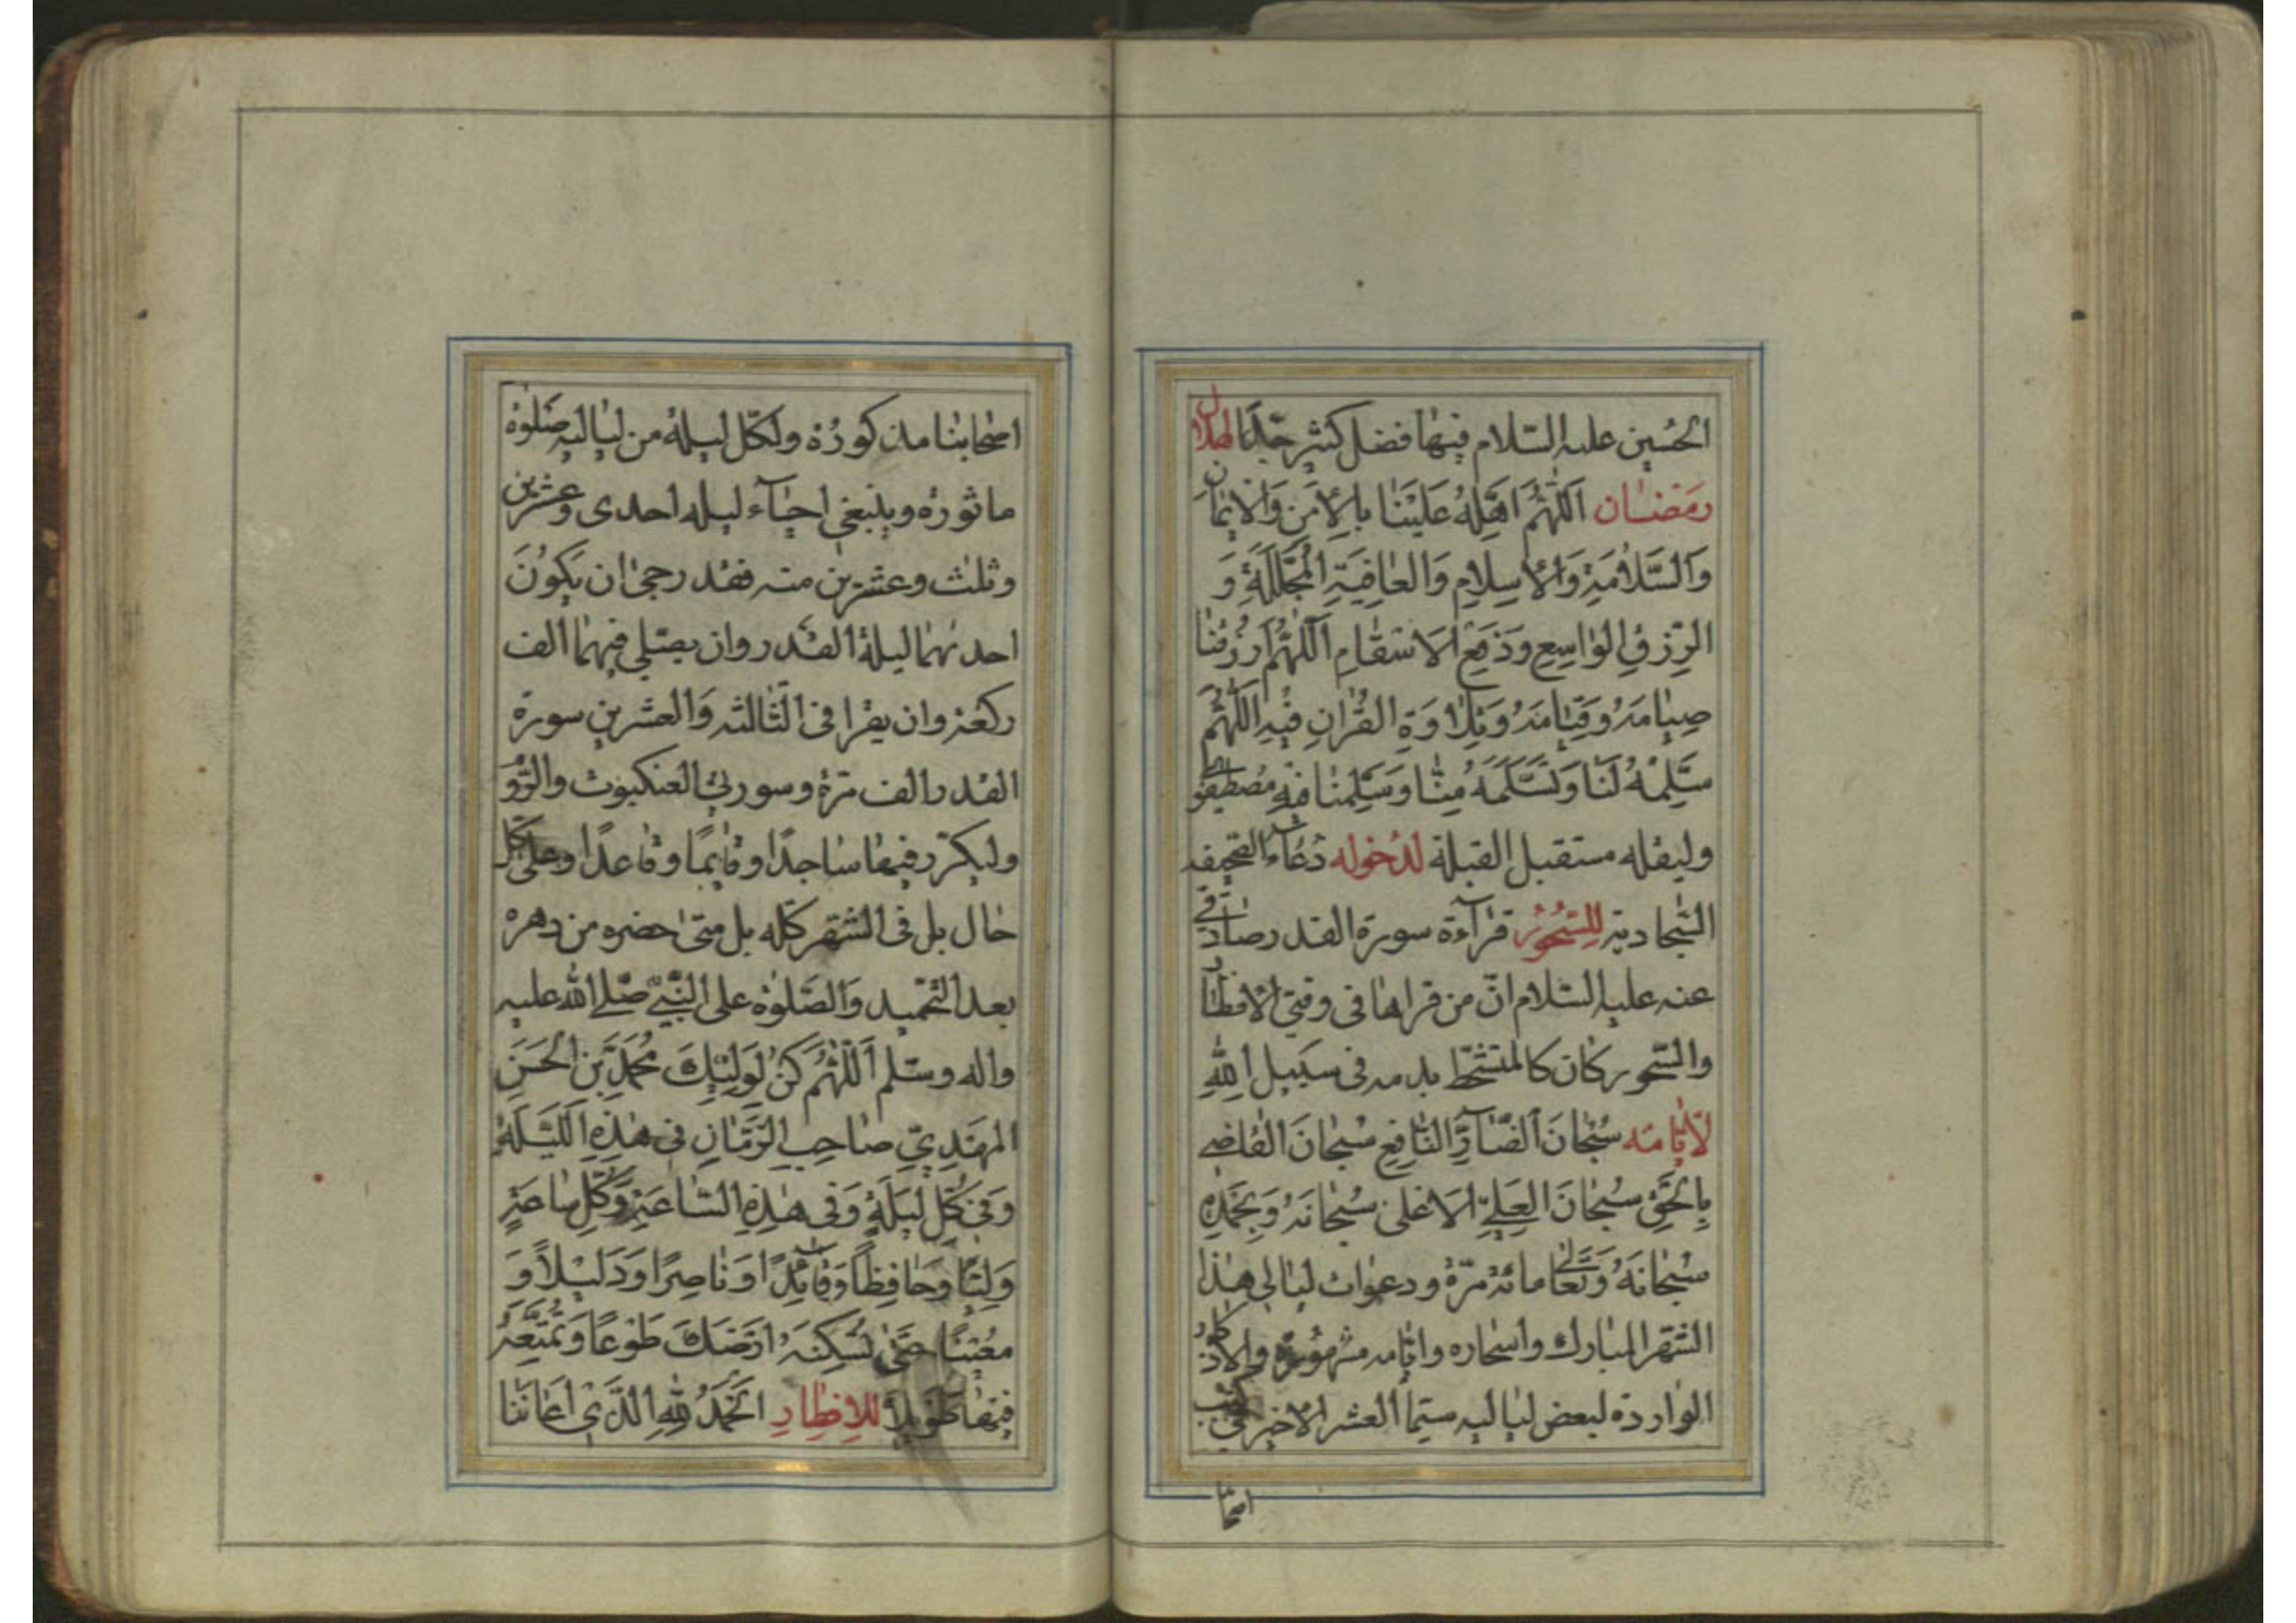 الحُسين عليه السّلام فيها فضل كثير جدًّا لهلال
رَمَضٰان اَللّٰهُمَّ اَهِلَّهُ عَلَيْنٰا بِالْاَمْنِ وَالْايمٰانِ
وَالسَّلٰامَةِ وَالْاِسْلٰامِ وَالْعٰافِيَةِ الْمُجَلَّلَةِ وَ
الرِّزْقِ الْوٰاسِعِ وَدَفْعِ الْاَسْقٰامِ اَللّٰهُمَّ ارْزُقْنٰا
صِيٰامَهُ وَقِيٰامَهُ وَتِلٰاوَةِ القُرْاٰنِ فيْهِ اَللّٰهُمَّ
سَلِّمْهُ لَنٰا وَتَسَلَّمَهُ مِنّٰا وَسَلِّمْنٰا فيْهِ مُصْطَفَوى
وليقله مستقبل القبلة لدُخوله دُعآء الصّحيفه
السّجاديّه للسّحُورُ قرآءة سورة القدر صادقى
عنه عليه السّلام انّ من قراها فى وقتى الافطار
والسّحور كان كالمتشحّط بدمه فى سبيل اللهِ
لايّامه سُبْحٰانَ الضّآرِّ النّٰافِعِ سُبْحٰانَ القٰاضى
بِالْحَقِّ سُبْحٰانَ العَلِىّ الْاَعْلىٰ سُبْحٰانَهُ وَبِحَمْدِهِ
سُبْحٰانَهُ وَتَعٰالى مائة مرّة ودعوات ليالى هذا
الشّهر المبارك واسحاره وايّامه مشهورة والاذكار
الواردة لبعض لياليه سيّما العشر الاخير فى كتب
اصحا
اصحابنا مذكورة ولكلّ ليلة من لياليه صَلٰوة
ماثورة وينبغى احيآء ليله احدى وعشرين
وثلث وعشرين منه فقد رجى ان يَكُونَ
احديهما ليلة القدر وان يصلّى فيهما الف
ركعة وان يقرا فى الثّالثه وَالعشرين سورة
القدر الف مرّة وسورتى العنكبوت والرّوم
وليكرّر فيها ساجدًا وقٰايمًا وقٰاعدًا وعلى كلّ
حٰال بل فى الشّهر كلّه بل متىٰ حضره من دهره
بعد التّحميد وَالصَّلوٰة على النّبىّ صلّى الله عليه
واله وسلّم اَللّٰهُمَّ كُنْ لِوَلِيّكَ مُحَمَّدِ بْنِ الْحَسَنِ
المهْدِىِّ صٰاحِبِ الزَّمٰانِ فى هٰذِهِ اللَّيْلَةِ
وَفى كُلِّ لَيْلَةٍ وَفى هٰذِهِ السّٰاعَةِ وَكُلِّ سٰاعَةٍ
وَلِيًّا وَحٰافِظًا وَقٰآئِدًا وَنٰاصِرًا وَدَليْلًا وَ
مُعيْنًا حَتّٰى تُسْكِنَهُ اَرْضَكَ طَوْعًا وَتُمَتِّعَهُ
فيْهٰا طَويْلًا للاِفطٰارِ اَلْحَمْدُ لِلّٰهِ الَّذى اَعٰانَنٰا